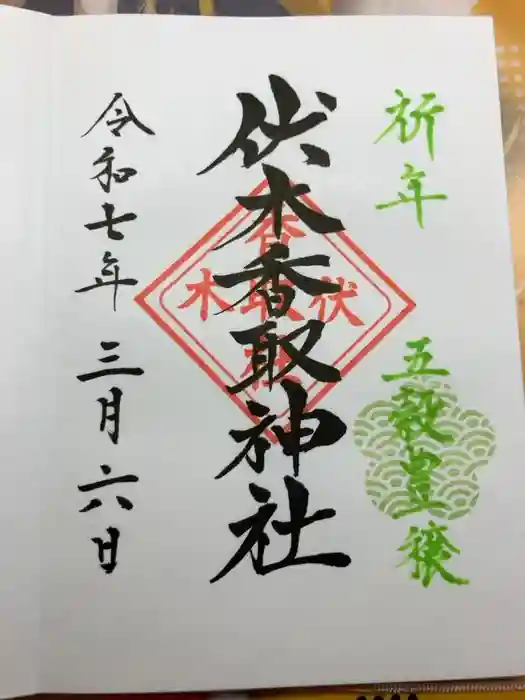 祈年
五穀豊穣
伏木香取神社
伏木
香取社
令和七年 三月六日